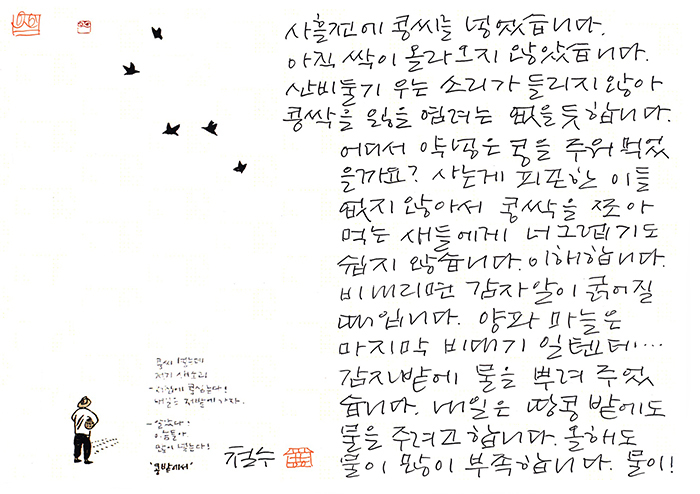 사흘전에 콩씨를 넣었습니다.
아직 싹이 올라오지 않았습니다.
산비둘기 우는 소리가 들리지않아
콩싹을 잃을 염려는 없을듯합니다.
어디서 약넣은 콩을 주워먹었
을까요? 사는게 피곤한 이들
없지않아서 콩싹을 쪼아
먹는 새들에게 너그럽기도
쉽지 않습니다. 이해합니다.
비내리면 감자알이 굵어질
때입니다. 양파 마늘은
마지막 비대기 일텐데…
감자밭에 물을 뿌려 주었
습니다. 내일은 땅콩 밭에도
물을 주려고합니다. 올해도
물이 많이 부족합니다. 물이!
콩씨 넣는데
저기 새소리
콩심는다!
내일은 저밭에 가자.
- 알았다!
이놈들아.
많이 넣는다!
"콩밭에서"
철수